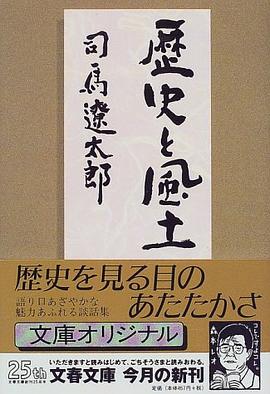 歴史と風土
司馬遼太郎
歴史を見る目の
あたたかさ
語り口あざやかな
魅力あふれる談話集
文庫オリジナル
25th
文春文庫創刊25周年
いただきますと読みはじめて、ごちそうさまと読みおわる。
文春文庫 今月の新刊